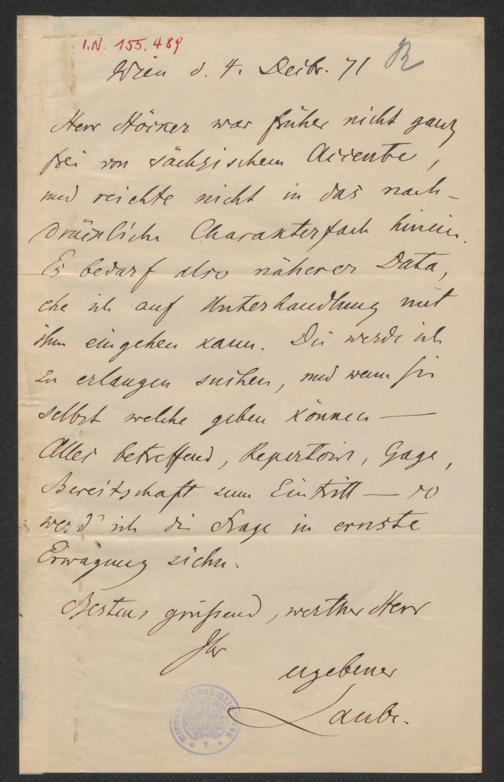 I.N. 155.489
R
Wien d. 4. Decbr. 71
Herr Höcker war früher nicht ganz
frei von sächsischem Accente,
und reichte nicht in das nach-
drückliche Charakterfach hinein.
Es bedarf also näherer Data,
ehe ich auf Unterhandlung mit
ihm eingehen kann. Die werde ich
zu erlangen suchen, und wenn Sie
selbst welche geben können —
Alles betreffend, Repertoire, Gage,
Bereitschaft zum Eintritt — so
werd' ich die Frage in ernste
Erwägung ziehn.
Bestens grüßend, werther Herr
Ihr
ergebener
Laube.